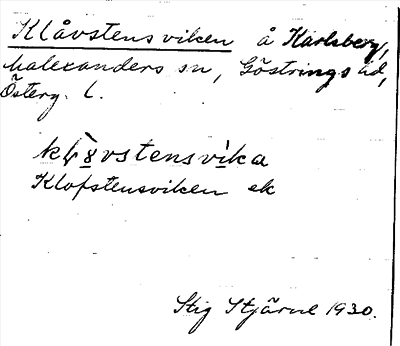 Klåvstensviken å Karlsberg,
Malexanders sn, Göstrings hd,
Österg. l.
Klofstensviken ek
Stig Stjärne 1930.